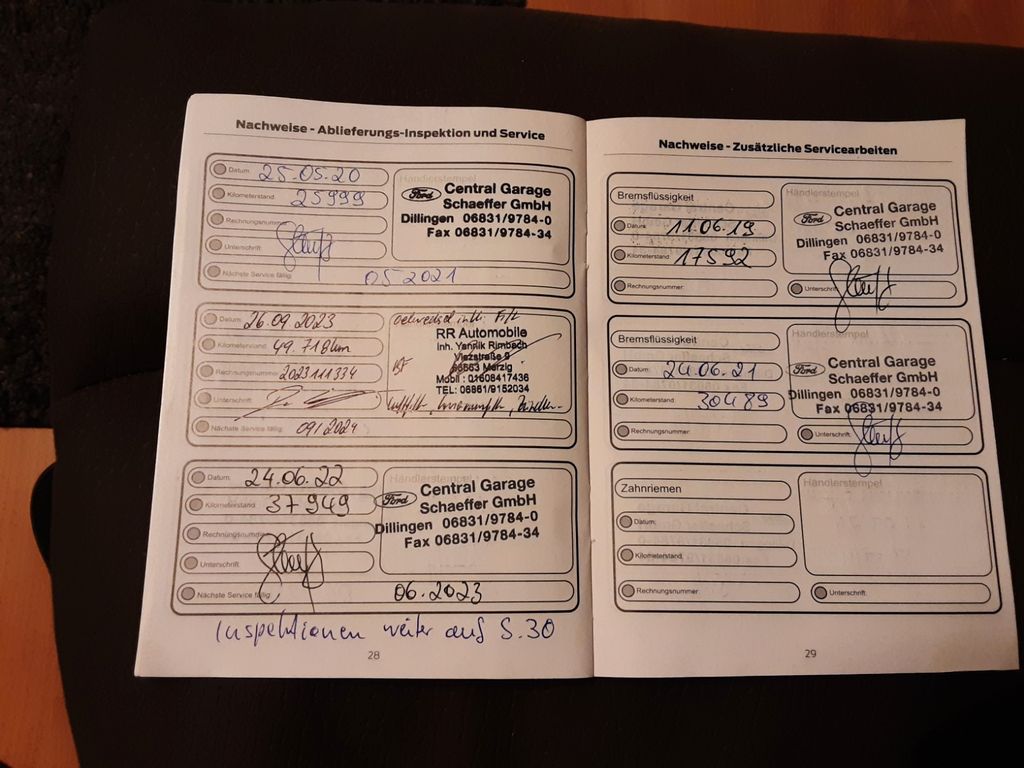 Nachweise - Ablieferungs-Inspektion und Service
Datum: 25.05.20
Kilometerstand: 25999
Rechnungsnummer:
Unterschrift:
Nächste Service fällig: 05 2021
Händlerstempel
Ford Central Garage
Schaeffer GmbH
Dillingen 06831/9784-0
Fax 06831/9784-34
Datum: 26.09 2023
Kilometerstand: 49.718km
Rechnungsnummer: 2023111334
Unterschrift:
Nächste Service fällig: 09/2024
Oelwechsel inkl. Filt
RR Automobile
Inh. Yannik Rimbach
Viezstraße 9
66663 Merzig
Mobil: 01608417436
TEL: 06861/9152034
Luftfilt.,
Datum: 24.06.22
Kilometerstand: 37949
Rechnungsnummer:
Unterschrift:
Nächste Service fällig: 06.2023
Ford Central Garage
Schaeffer GmbH
Dillingen 06831/9784-0
Fax 06831/9784-34
Inspektionen weiter auf S.30
28
Nachweise - Zusätzliche Servicearbeiten
Bremsflüssigkeit
Datum: 11.06.19
Kilometerstand: 17592
Rechnungsnummer:
Händlerstempel
Ford Central Garage
Schaeffer GmbH
Dillingen 06831/9784-0
Fax 06831/9784-34
Unterschrift:
Bremsflüssigkeit
Datum: 24.06.21
Kilometerstand: 30489
Rechnungsnummer:
Händlerstempel
Ford Central Garage
Schaeffer GmbH
Dillingen 06831/9784-0
Fax 06831/9784-34
Unterschrift:
Zahnriemen
Datum:
Kilometerstand:
Rechnungsnummer:
Händlerstempel
Unterschrift:
29